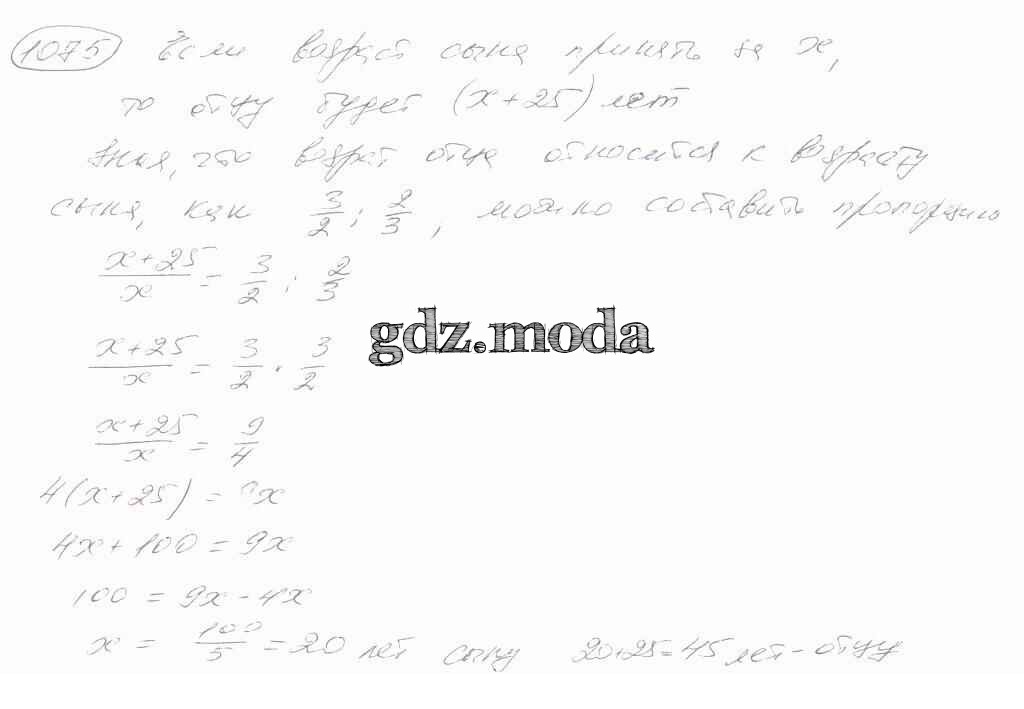 1075 Если возраст сына принять за x,
то отцу будет (x+25) лет
Зная, что возраст отца относится к возрасту
сына, как 3/2 : 2/3, можно составить пропорцию
(x+25)/x = 3/2 : 2/3
gdz.moda
(x+25)/x = 3/2 · 3/2
(x+25)/x = 9/4
4(x+25) = 9x
4x+100 = 9x
100 = 9x-4x
x = 100/5 = 20 лет сыну 20+25=45 лет - отцу